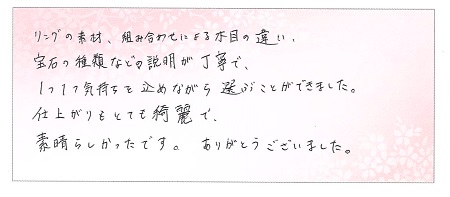 リングの素材、組み合わせによる木目の違い、
宝石の種類などの説明が丁寧で、
1つ1つ気持ちを込めながら選ぶことができました。
仕上がりもとても綺麗で、
素晴らしかったです。ありがとうございました。